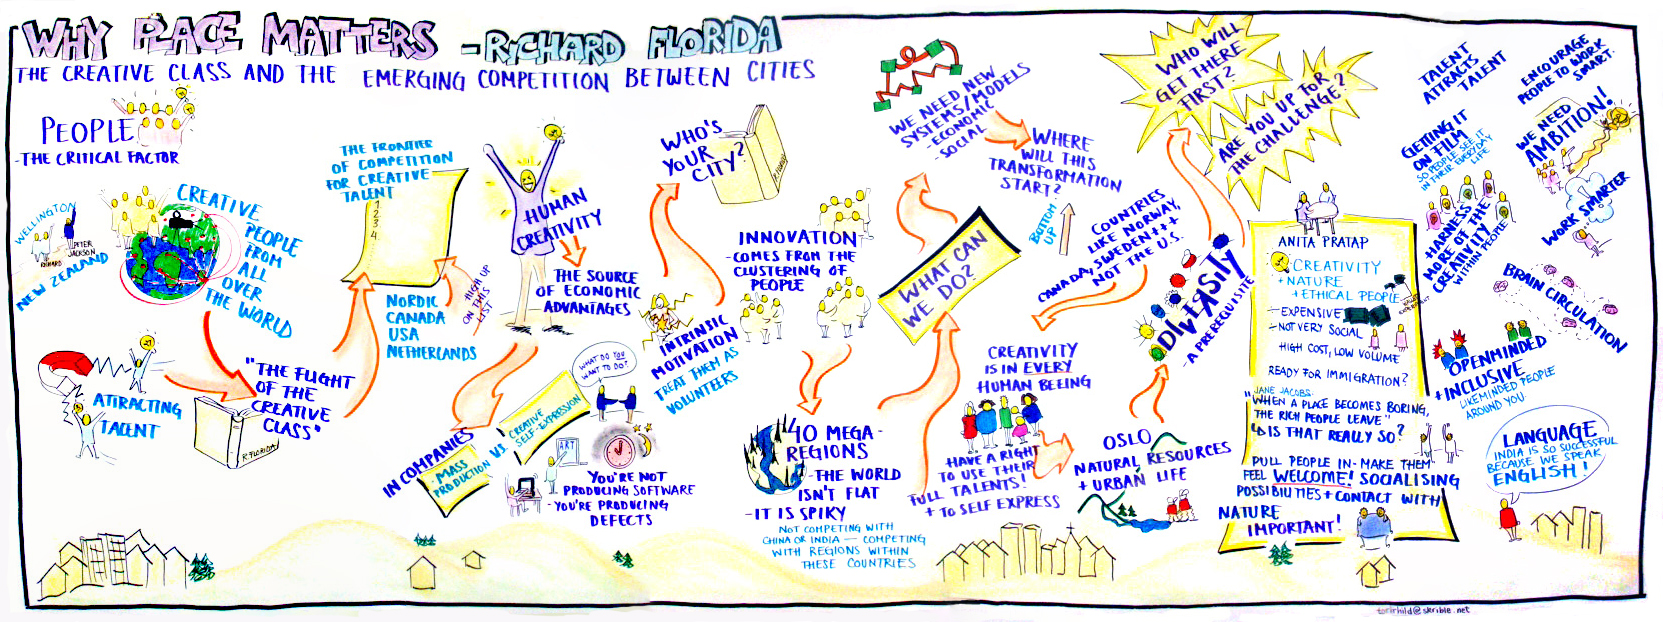 WHY PLACE MATTERS - RICHARD FLORIDA
THE CREATIVE CLASS AND THE EMERGING COMPETITION BETWEEN CITIES
PEOPLE
- THE CRITICAL FACTOR
WELLINGTON
RICHARD
PETER
JACKSON
NEW ZEALAND
CREATIVE
PEOPLE
FROM
ALL
OVER
THE WORLD
ATTRACTING
TALENT
"THE FLIGHT
OF THE
CREATIVE
CLASS"
R.FLORIDA
THE FRONTIER
OF COMPETITION
FOR CREATIVE
TALENT
1
2
3
4
NORDIC
CANADA
USA
NETHERLANDS
HIGH UP
ON THIS
LIST
HUMAN
CREATIVITY
THE SOURCE
OF ECONOMIC
ADVANTAGES
IN COMPANIES
- MASS
PRODUCTION
VS
CREATIVE
SELF-EXPRESSION
WHAT DO YOU
WANT TO DO?
ART
YOU'RE NOT
PRODUCING SOFTWARE
- YOU'RE PRODUCING
DEFECTS
INTRINSIC
MOTIVATION
TREAT THEM AS
VOLUNTEERS
WHO'S
YOUR
CITY?
R.FLORIDA
INNOVATION
- COMES FROM THE
CLUSTERING OF
PEOPLE
40 MEGA-
REGIONS
- THE WORLD
ISN'T FLAT
- IT IS SPIKY
NOT COMPETING WITH
CHINA OR INDIA — COMPETING
WITH REGIONS WITHIN
THESE COUNTRIES
WHAT CAN
WE DO?
WE NEED NEW
SYSTEMS/MODELS
- ECONOMIC
- SOCIAL
WHERE
WILL THIS
TRANSFORMATION
START?
BOTTOM
UP
COUNTRIES
LIKE NORWAY,
CANADA, SWEDEN +++
NOT THE U.S.
CREATIVITY
IS IN EVERY
HUMAN BEEING
HAVE A RIGHT
TO USE THEIR
FULL TALENTS!
+ TO SELF EXPRESS
OSLO
NATURAL RESOURCES
+ URBAN LIFE
DIVERSITY
- A PREREQUISITE
WHO WILL
GET THERE
FIRST?
ARE YOU UP FOR
THE CHALLENGE?
ANITA PRATAP
CREATIVITY
+ NATURE
+ ETHICAL PEOPLE
- EXPENSIVE
- NOT VERY SOCIAL
HIGH COST, LOW VOLUME
READY FOR IMMIGRATION?
JANE JACOBS:
"WHEN A PLACE BECOMES BORING,
THE RICH PEOPLE LEAVE"
IS THAT REALLY SO?
PULL PEOPLE IN - MAKE THEM
FEEL WELCOME! SOCIALISING
POSSIBILITIES + CONTACT WITH
NATURE
IMPORTANT!
TALENT
ATTRACTS
TALENT
ENCOURAGE
PEOPLE TO WORK
SMART.
GETTING IT
ON FILM
SO PEOPLE SEE IT
IN THEIR EVERYDAY
LIFE
WE NEED
AMBITION!
- HARNESS
MORE OF THE
CREATIVITY
WITHIN PEOPLE
WORK SMARTER
BRAIN CIRCULATION
OPENMINDED
+ INCLUSIVE
LIKEMINDED PEOPLE
AROUND YOU
LANGUAGE
INDIA IS SO SUCCESSFUL
BECAUSE WE SPEAK
ENGLISH!